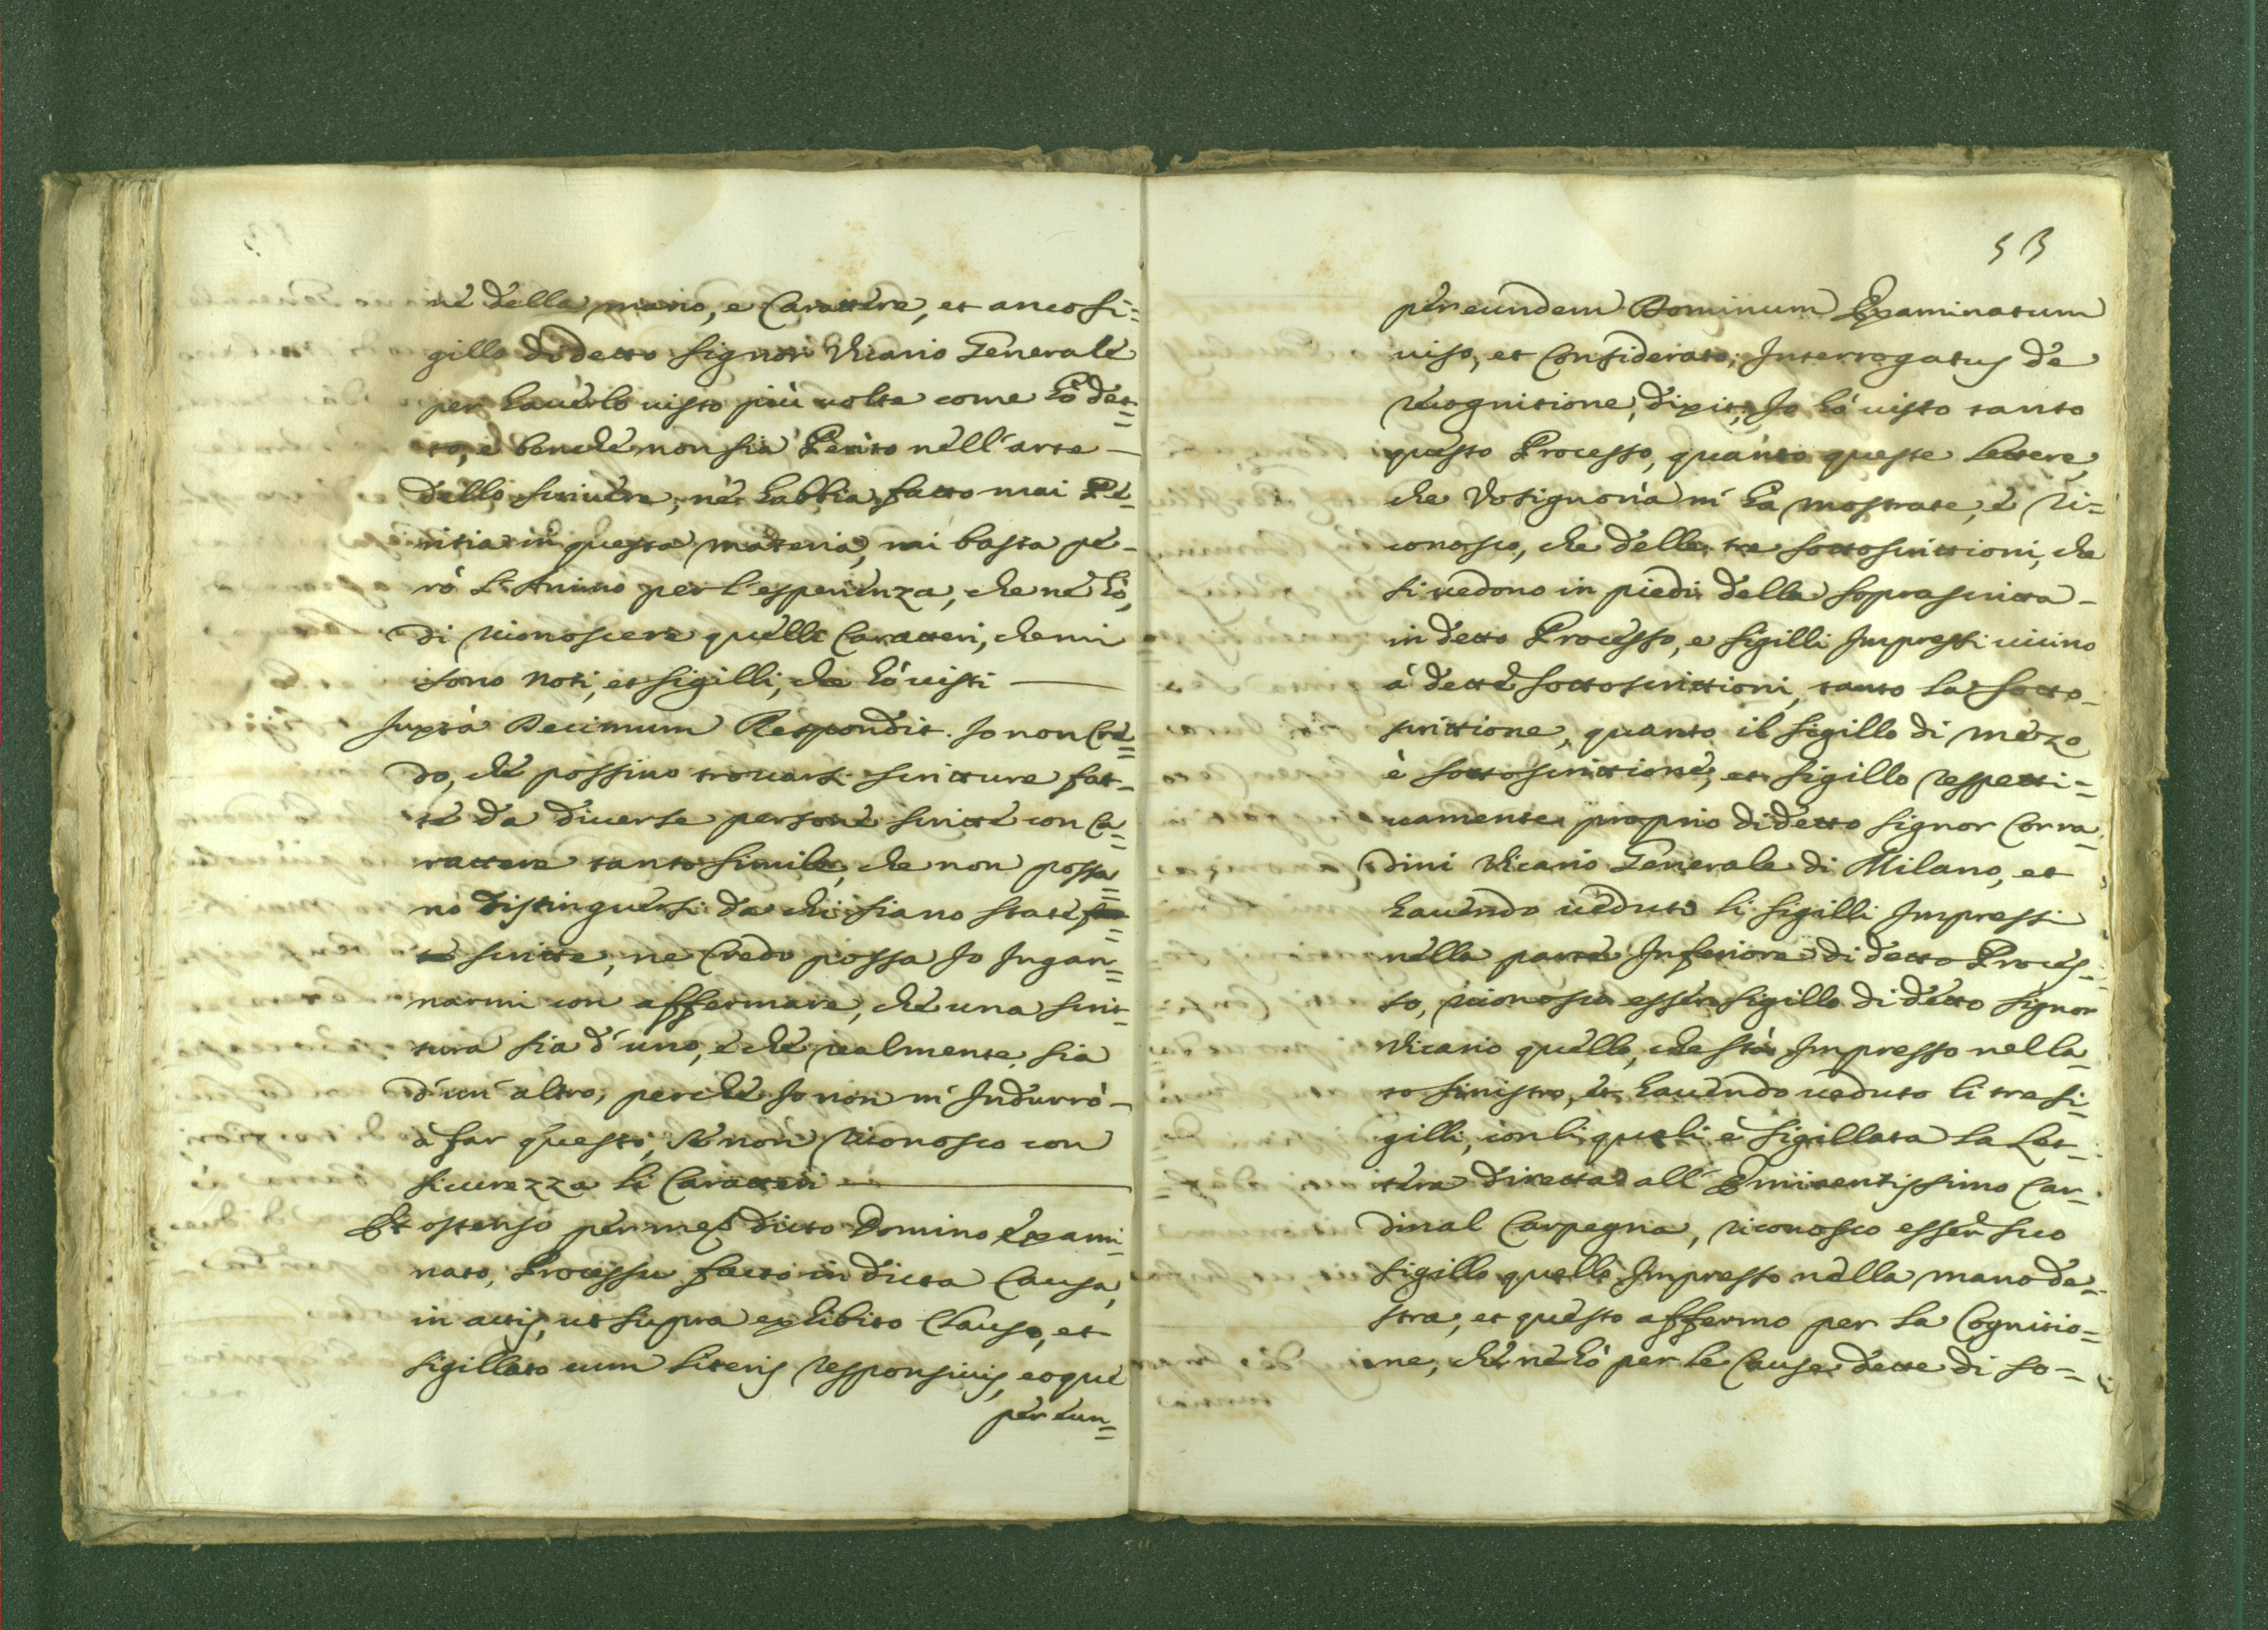 ne della mano, e Carattere, et anco si=
gillo di detto Signor Vicario Generale
per hauerlo uisto più uolte come hò det=
to, e benche non sia Perito nell'arte —
dello scriuere, nè habbia fatto mai Pe=
ritia in questa materia, mi basta pe-
rò l'Animo per l'esperienza, che ne hò,
di riconoscere quelli Caratteri, che mi
sono noti, et sigilli, che hò uisti —
Juxta Decimum Respondit. Io non Cre=
do, che possino trouarsi scritture fat=
te da diuerse persone scritte con Ca=
rattere tanto simile, che non possa=
no distinguersi da chi siano state
scritte, ne Credo possa Io Ingan=
narmi con affermare, che una scrit=
tura sia d'uno, e che realmente sia
d'un altro, perche Io non m'Indurrò —
à far questo, se non riconosco con
sicurezza li Caratteri —
Et ostenso per me dicto Domino exami=
nato, Processu facto in dicta Causa,
in actis, ut supra exhibito Clauso, et
sigillato cum literis responsiuis, eoque
per eun=
53
per eundem Dominum Examinatum
uiso, et Considerato; Interrogatus de
recognitione, dixit; Io hò uisto tanto
questo Processo, quanto queste lettere,
che Vosignoria m'hà mostrate, e ri=
conosco, che delle tre sottoscrittioni, che
si uedono in piedi della soprascritta —
in detto Processo, e sigilli Impressi uicino
à dette sottoscrittioni, tanto la sotto-
scrittione, quanto il sigillo di mezzo
è sottoscrittione, et sigillo respetti=
uamente proprio di detto Signor Corra=
dini Vicario Generale di Milano, et
hauendo ueduto li sigilli Impressi
nella parte Inferiore di detto Proces=
so, riconosco esser sigillo di detto Signor
Vicario quello, che stà Impresso nella-
to sinistro, et hauendo ueduto li tre si=
gilli, con li quali è sigillata la Let=
tera diretta all'Eminentissimo Car=
dinal Carpegna, riconosco esser suo
sigillo quello Impresso nella mano de=
stra, et questo affermo per la Cognitio=
ne, che ne hò per le Cause dette di so=